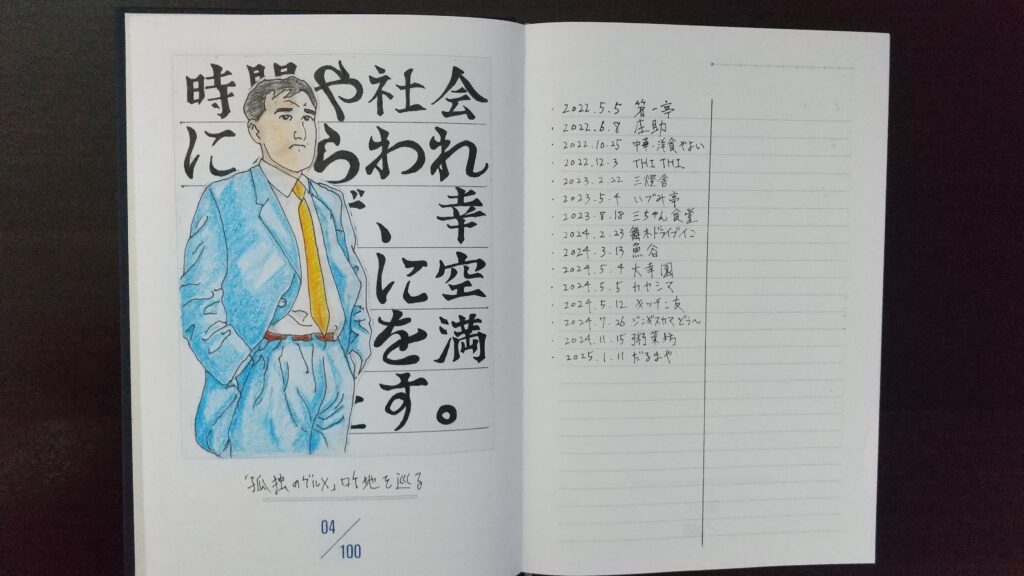 時間や社会
にらわれ
ず、幸
に空
を満
す。
「孤独のグルメ」ロケ地を巡る
04/100
・2022.5.5 第一亭
・2022.6.8 庄助
・2022.10.25 中華・洋食やよい
・2022.12.3 THITHI
・2023.2.22 三燈舎
・2023.5.4 いづみ亭
・2023.8.18 三ちゃん食堂
・2024.2.23 舞木ドライブイン
・2024.3.13 魚谷
・2024.5.4 大幸園
・2024.5.5 カヤシマ
・2024.5.12 キッチン友
・2024.7.26 ジンギスカマどぅ〜
・2024.11.15 粥菜坊
・2025.1.11 だるまや